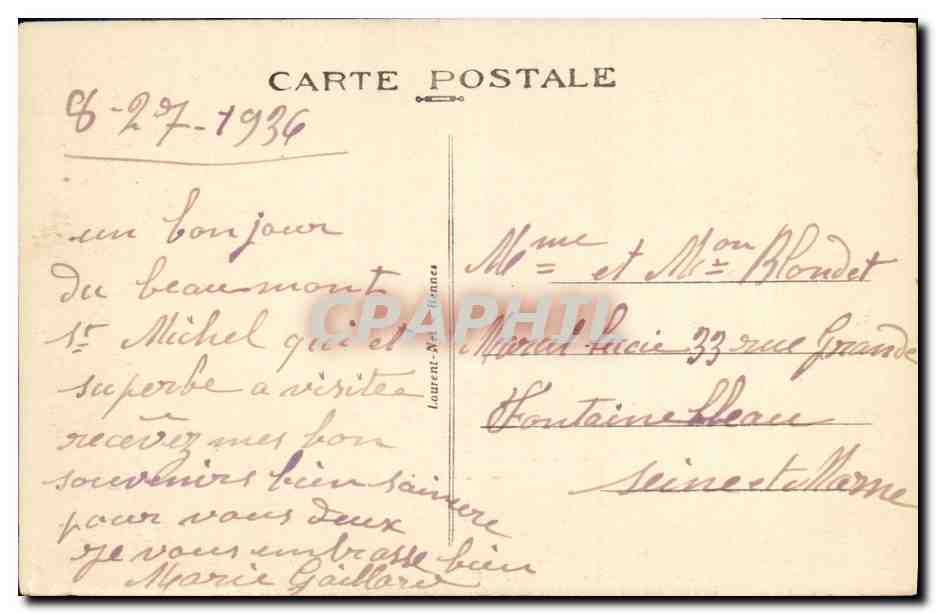 CARTE POSTALE
8-27-1936
un bonjour
du beau mont
St Michel qui et
superbe a visitée
recevez mes bon
souvenirs bien saincere
pour vous deux
je vous embrasse bien
Marie Gaillard
Laurent-Nel
CPAPHIL
Mme et Mon Blondet
33 rue Grande
Fontainebleau
Seine et Marne